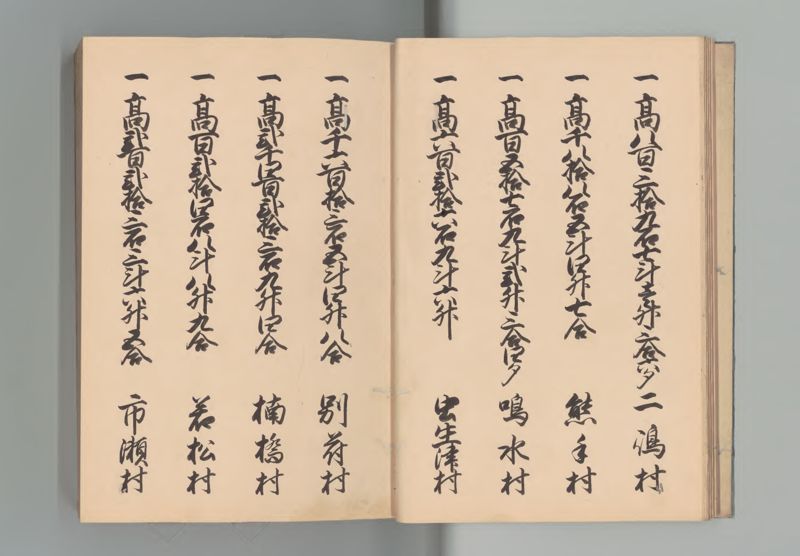 一 高八百三拾九石七斗壱升三合六夕 二嶋村
一 高千八拾八石五斗四升七合 熊手村
一 高百五拾七石九斗弐升三合四夕 鳴水村
一 高六百弐拾六石九斗六升 虫生津村
一 高千六百拾三石五斗四升八合 別府村
一 高弐千四百弐拾三石九升四合 楠橋村
一 高百弐拾四石八斗八升九合 若松村
一 高弐百弐拾三石三斗六升五合 市瀬村